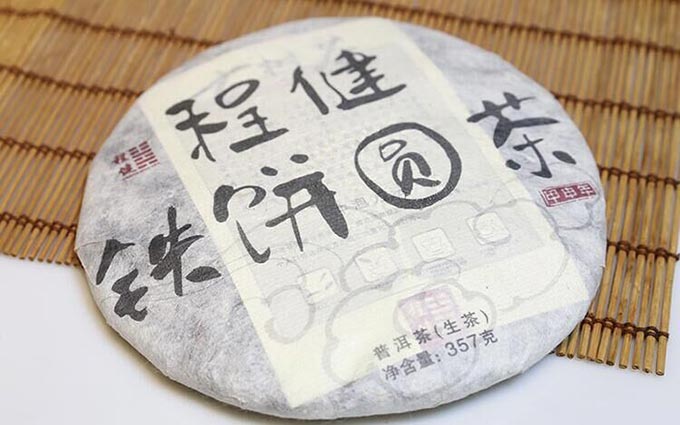 程健
铁饼圆茶
程健
甲申年
普洱茶(生茶)
净含量: 357克